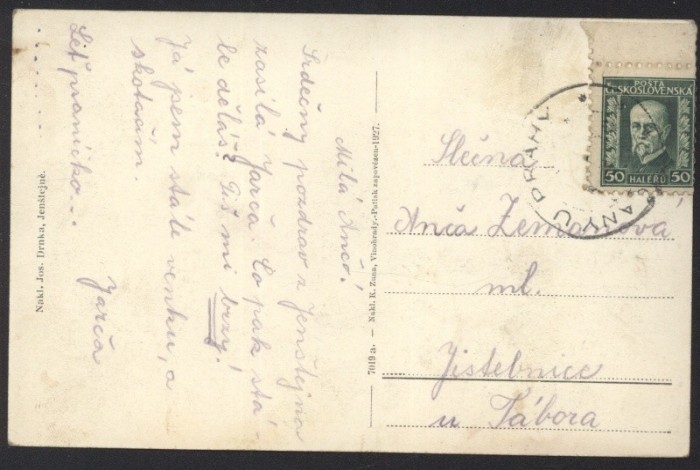 Milá Ančo!
Srdečný pozdrav z Jenštejna
zasílá Jarča. Co pak stá-
le děláš? Piš mi brzy!
Já jsem stále venku, a
skotačím.
Leť psaníčko...
Jarča
Nakl. Jos. Drnka, Jenštejně.
7019 a. — Nakl. K. Zuna, Vinohrady.-Patisk zapovězen-1927.
POŠTA
ČESKOSLOVENSKÁ
50 HALÉŘŮ 50
ANY U PRAHY
Slečna
Anča Zemanová
ml.
Jistebnice
u Tábora